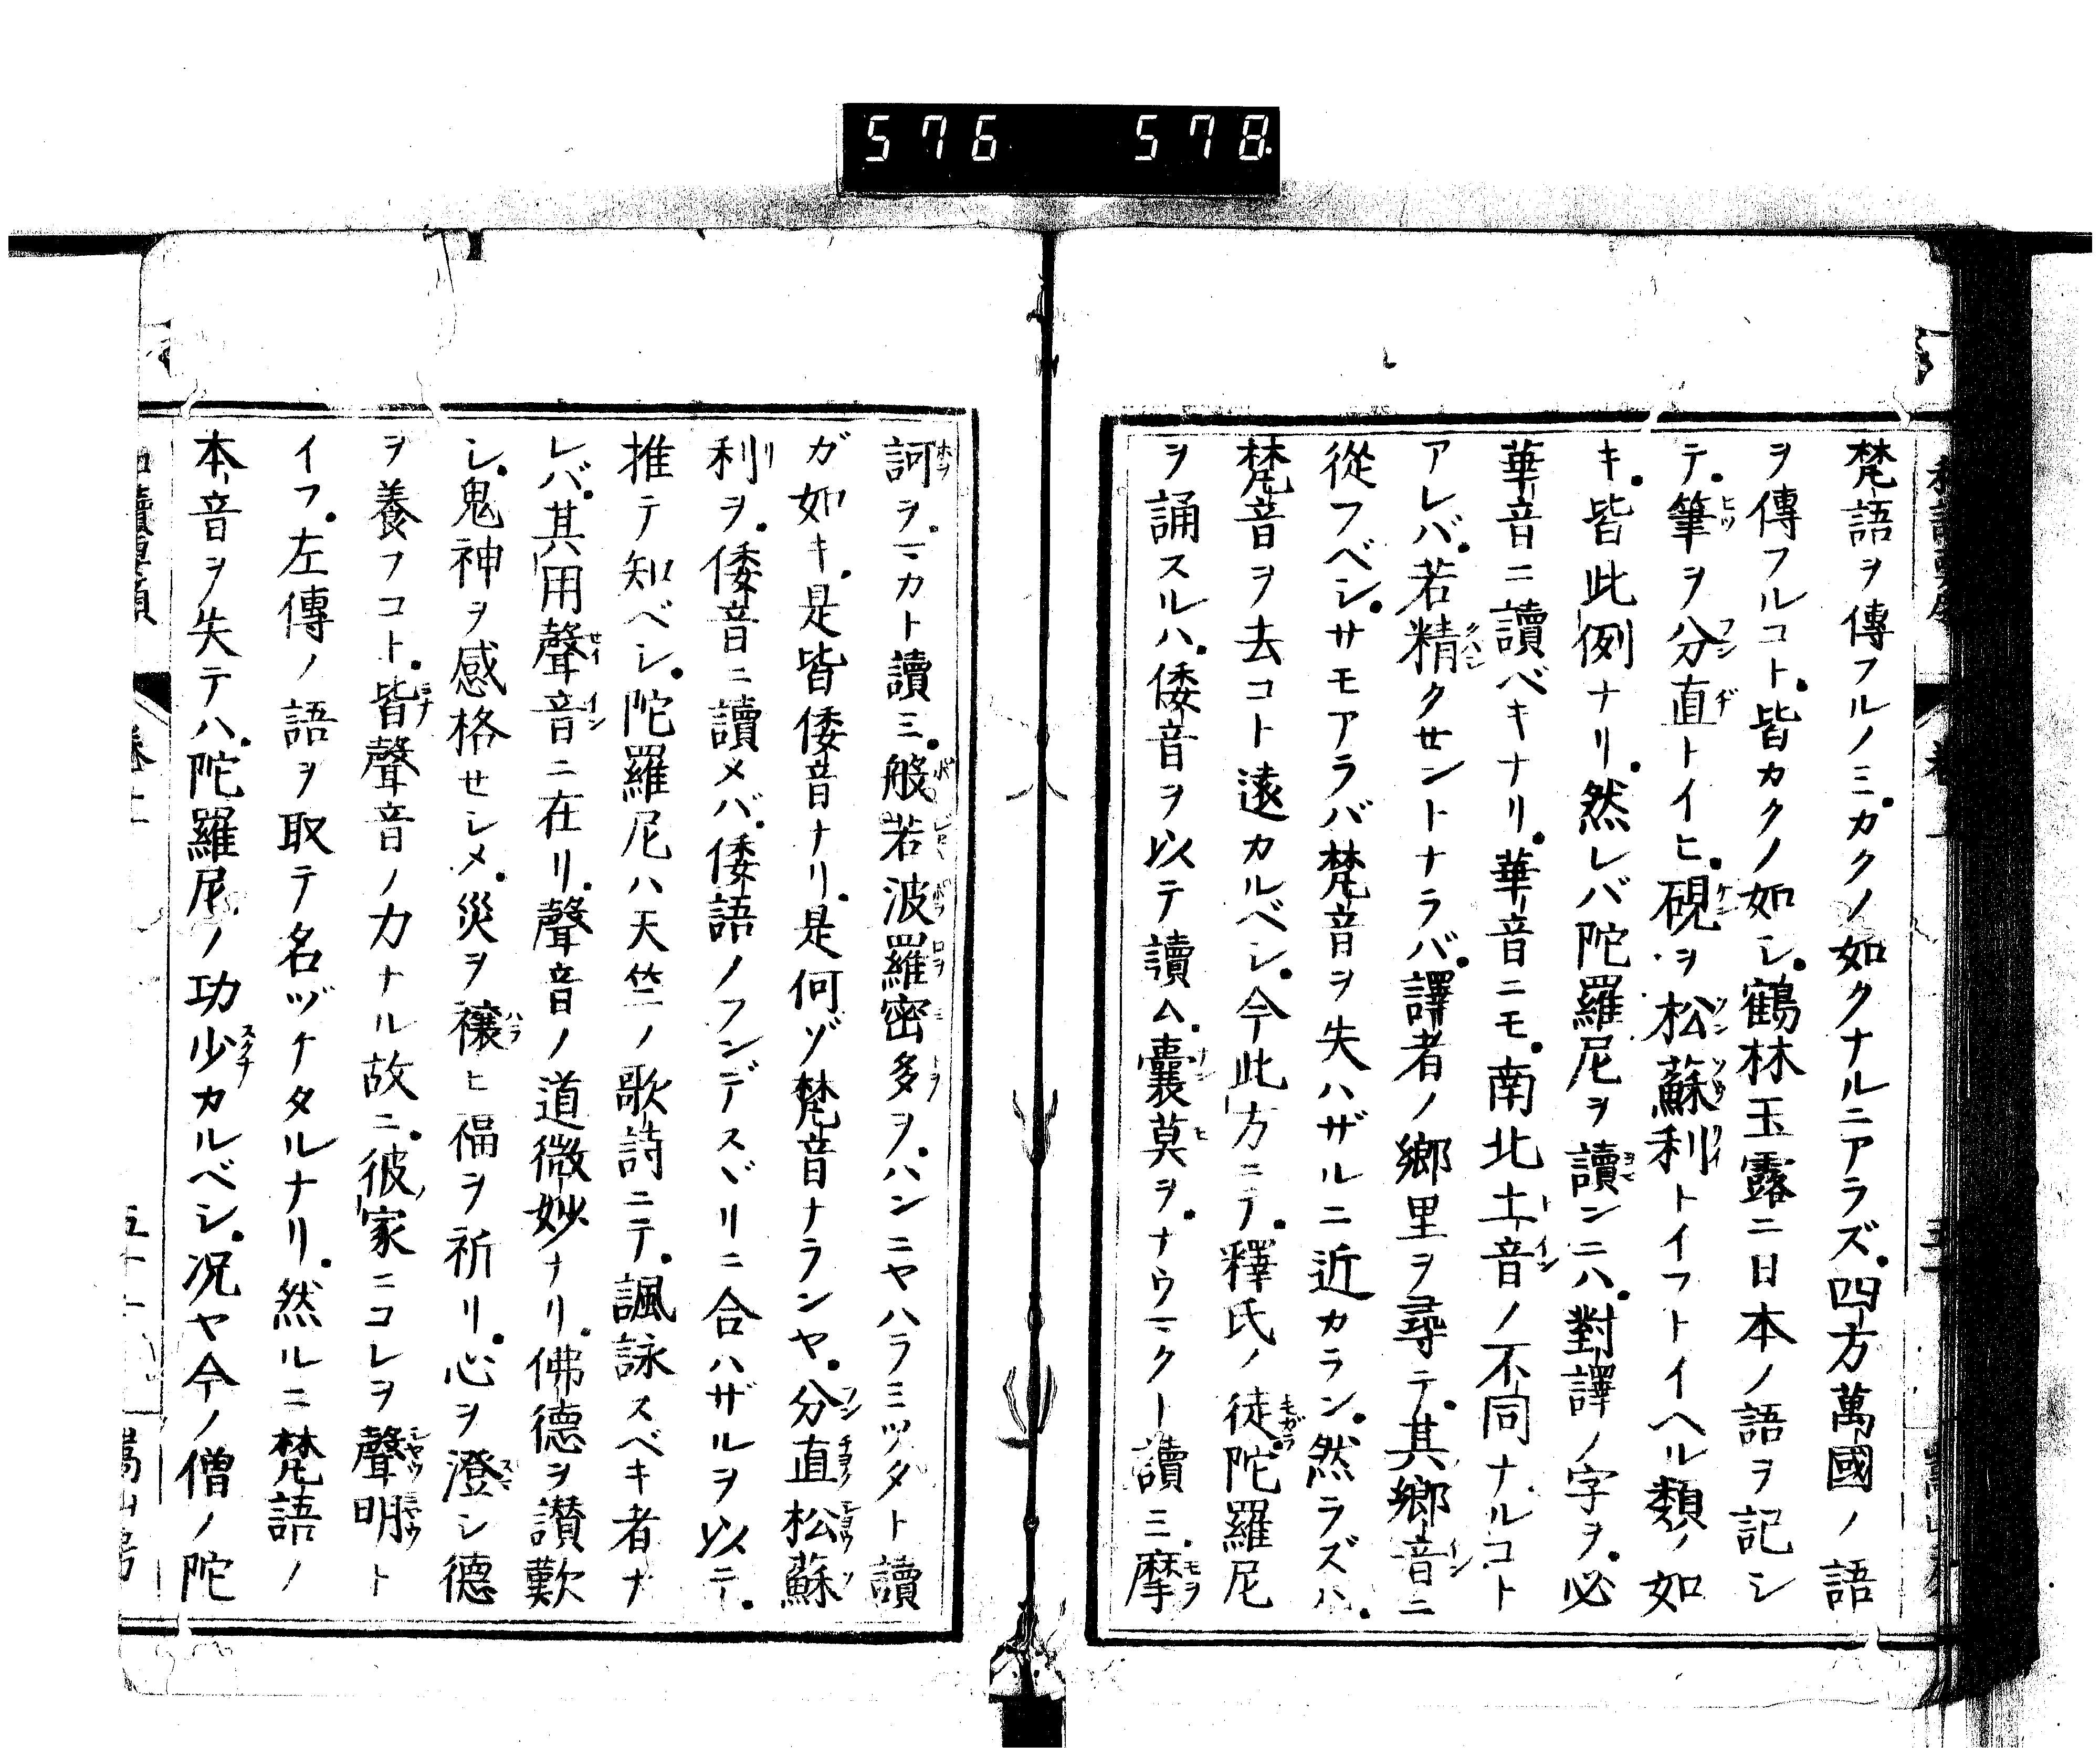 576 578
梵語ヲ傳フルノミ.カクノ如クナルニアラズ.四方萬國ノ語
ヲ傳フルコト.皆カクノ如シ.鶴林玉露ニ日本ノ語ヲ記シ
テ.筆ヲ分直トイヒ.硯ヲ松蘇利トイフトイヘル類ノ如
キ.皆此例ナリ.然レバ陀羅尼ヲ讀ンニハ.對譯ノ字ヲ.必
華音ニ讀ベキナリ.華音ニモ.南北土音ノ不同ナルコト
アレバ.若精クセントナラバ.譯者ノ鄉里ヲ尋テ.其鄉音ニ
從フベシ.サモアラバ梵音ヲ失ハザルニ近カラン.然ラズハ.
梵音ヲ去コト遠カルベシ.今此方ニテ.釋氏ノ徒陀羅尼
ヲ誦スルハ.倭音ヲ以テ讀ム.曩莫ヲ.ナウマクト讀ミ.摩
訶ヲ.マカト讀ミ.般若波羅密多ヲ.ハンニヤハラミツタト讀
ガ如キ.是皆倭音ナリ.是何ゾ梵音ナランヤ.分直松蘇
利ヲ.倭音ニ讀メバ.倭語ノフンデスヾリニ合ハザルヲ以テ.
推テ知ベシ.陀羅尼ハ天竺ノ歌詩ニテ.諷詠スベキ者ナ
レバ.其用聲音ニ在リ.聲音ノ道微妙ナリ.佛德ヲ讚歎
シ.鬼神ヲ感格セシメ.災ヲ禳ヒ福ヲ祈リ.心ヲ澄シ德
ヲ養フコト.皆聲音ノ力ナル故ニ.彼家ニコレヲ聲明ト
イフ.左傳ノ語ヲ取テ名ヅケタルナリ.然ルニ梵語ノ
本音ヲ失テハ.陀羅尼ノ功少カルベシ.況ヤ今ノ僧ノ陀